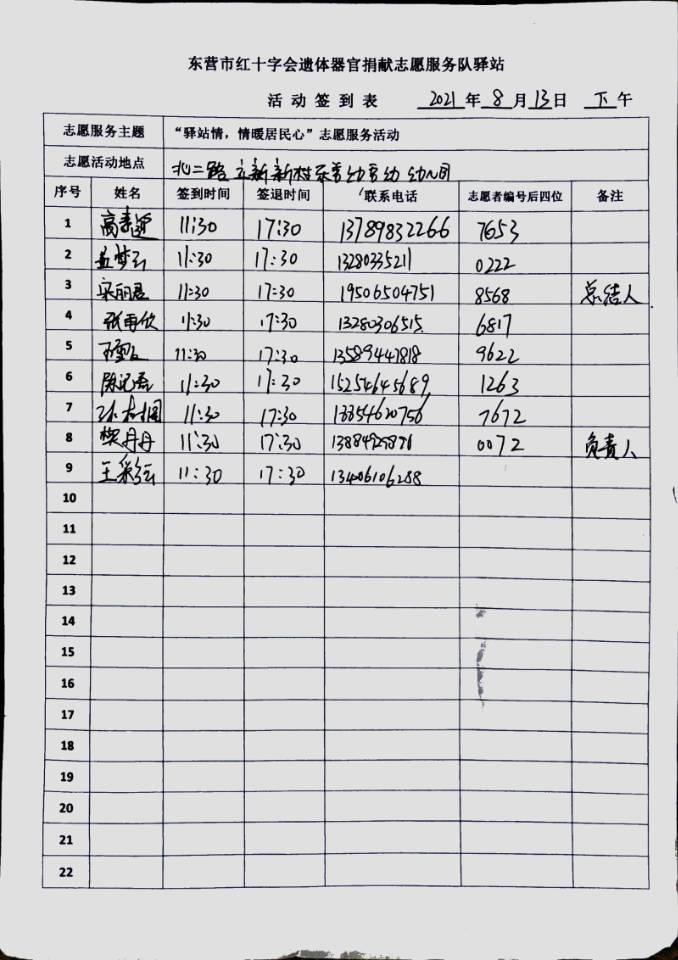 东营市红十字会遗体器官捐献志愿服务队驿站
活动签到表 2021年8月13日 下午
志愿服务主题 “驿站情，情暖居民心”志愿服务活动
志愿活动地点 北二路立新新村 幼儿园
序号 姓名 签到时间 签退时间 联系电话 志愿者编号后四位 备注
1 高 11:30 17:30 13789832266 7653
2 孟梦云 11:30 17:30 13280335211 0222
3 宋丽君 11:30 17:30 19506504751 8568 总结人
4 张雨欣 11:30 17:30 13280306515 6817
5 11:30 17:30 13589447818 9622
6 陈 11:30 17:30 15254645689 1263
7 孙 11:30 17:30 13354620756 7672
8 樊丹丹 11:30 17:30 0072 负责人
9 王彩云 11:30 17:30 13406106288
10
11
12
13
14
15
16
17
18
19
20
21
22